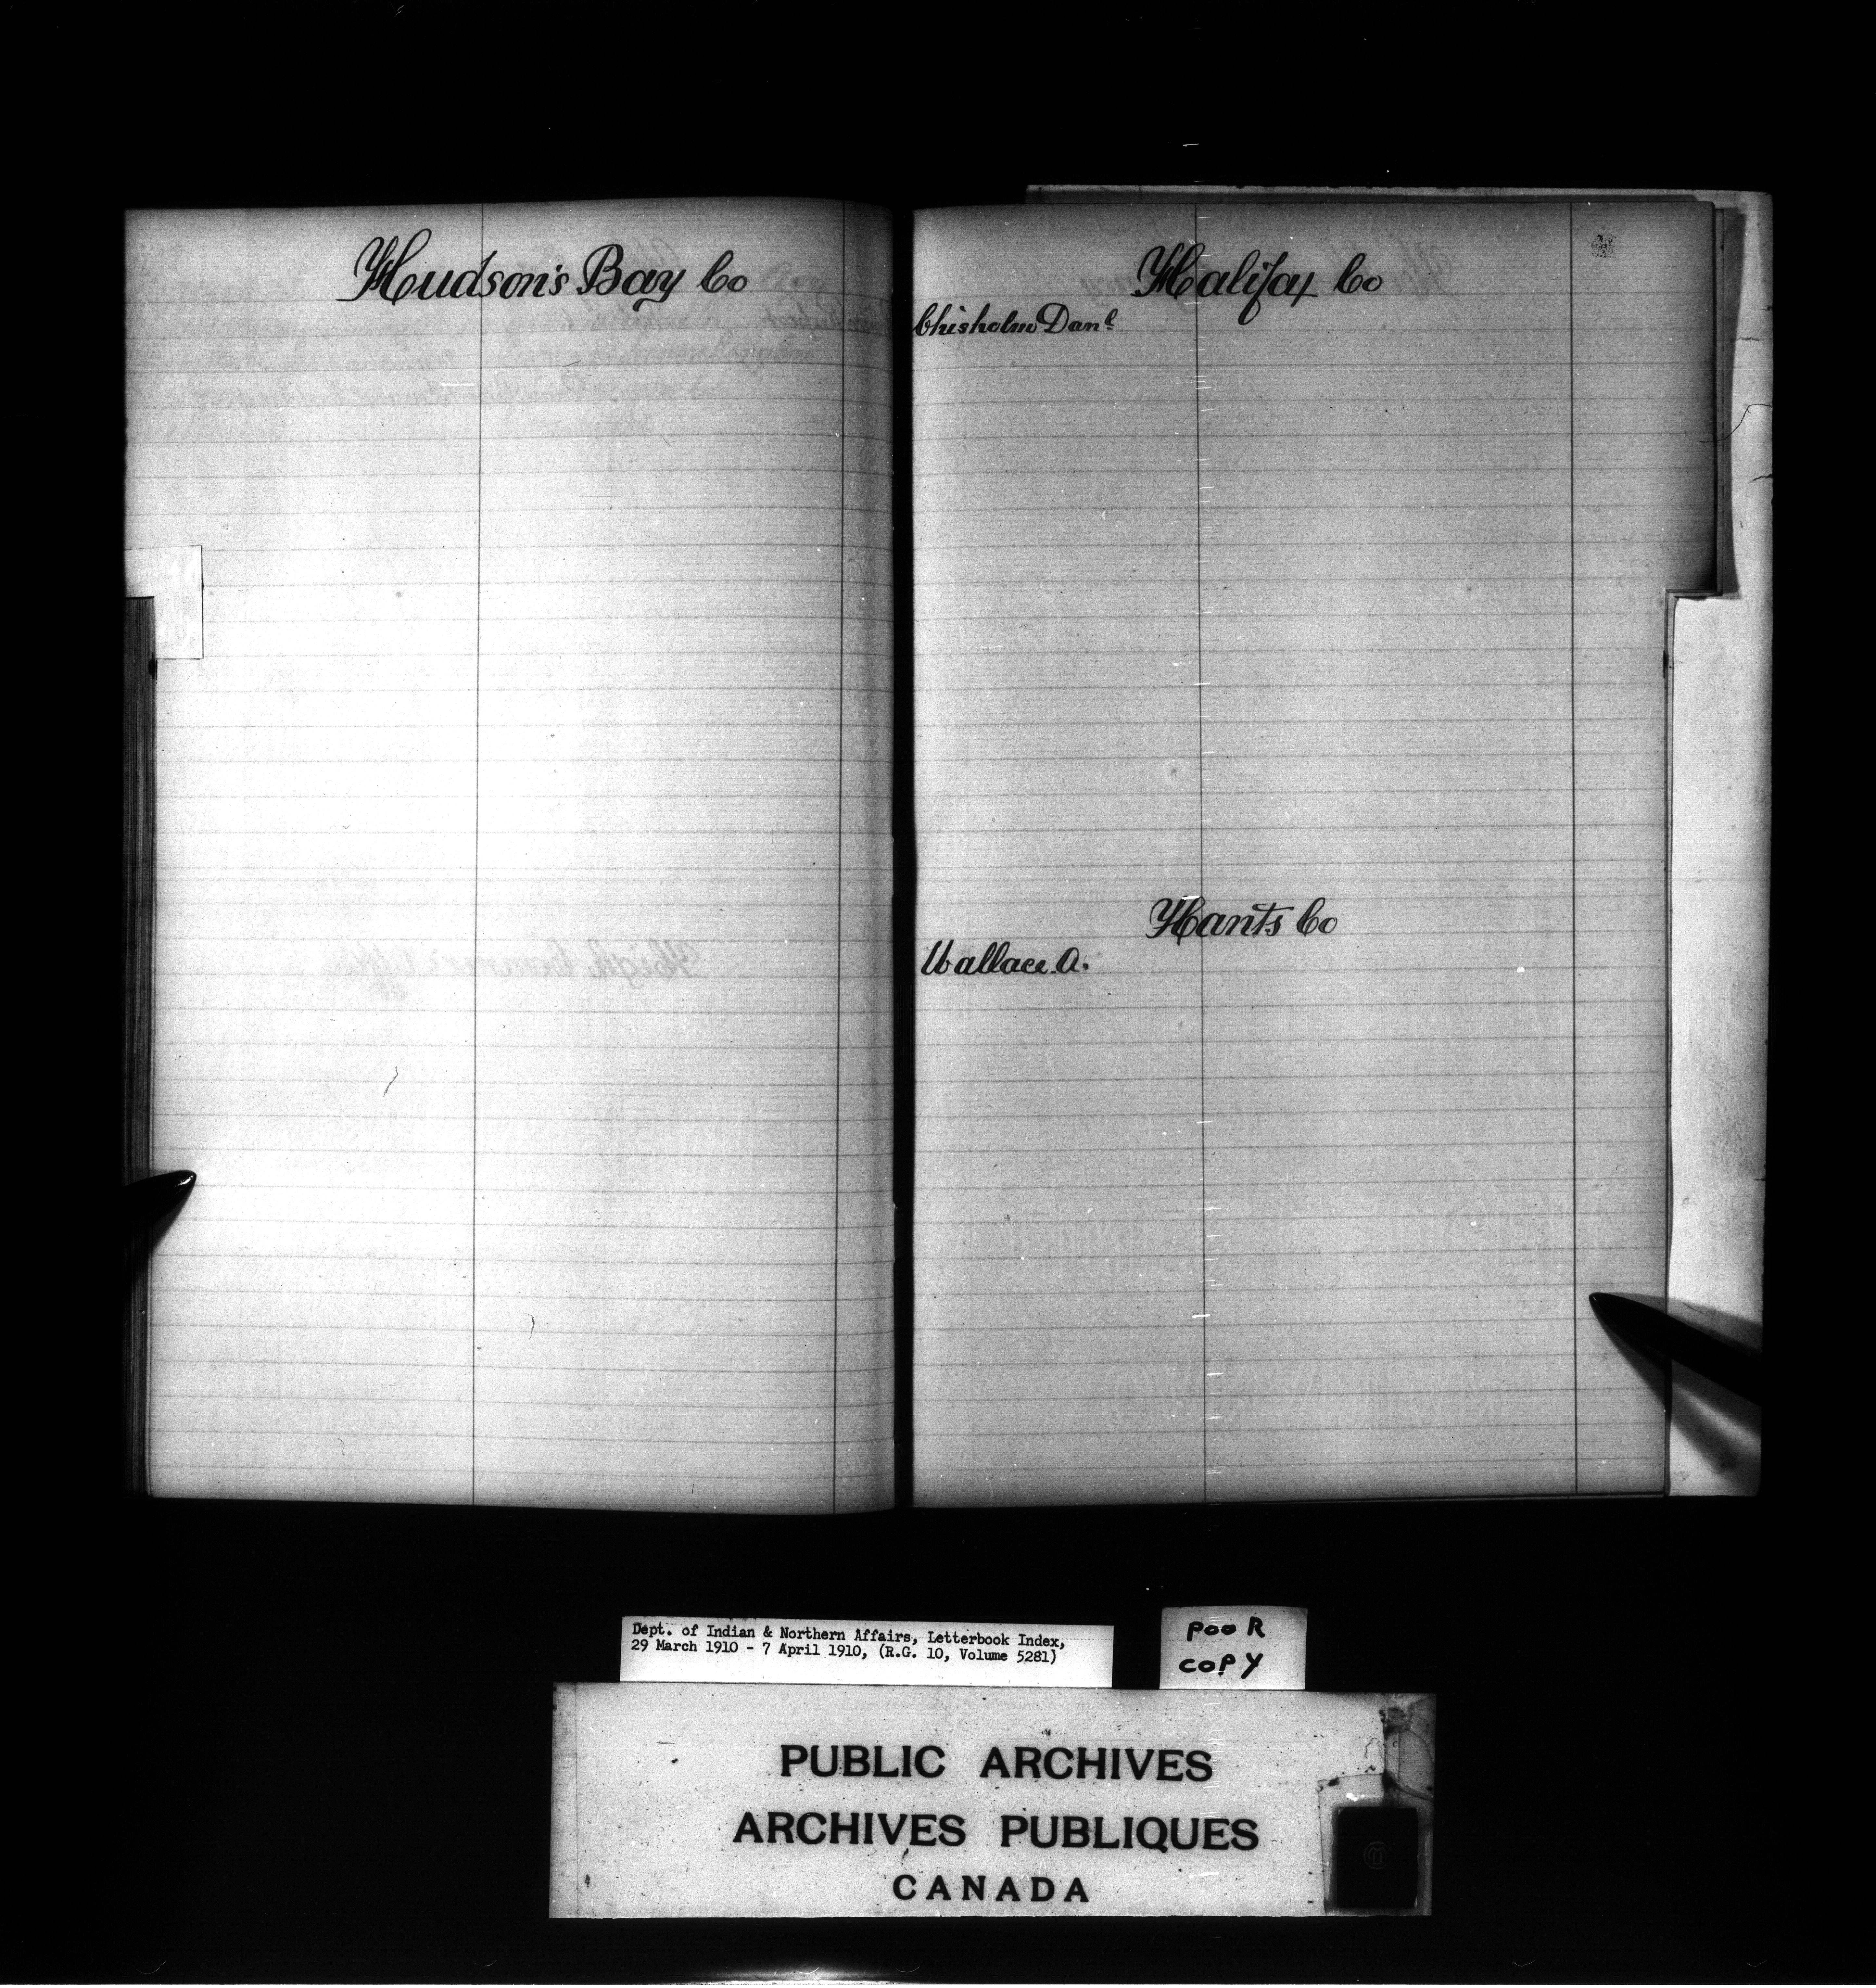 Hudson's Bay Co
Halifax Co
Chisholm Danl
Hants Co
Wallace A.
Dept. of Indian & Northern Affairs, Letterbook Index,
29 March 1910 - 7 April 1910, (R.G. 10, Volume 5281)
POOR
COPY
PUBLIC ARCHIVES
ARCHIVES PUBLIQUES
CANADA